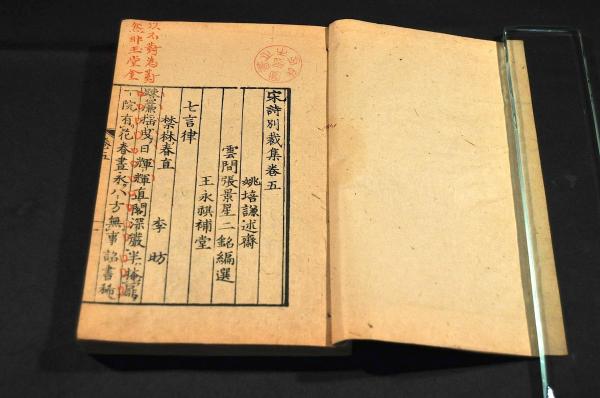 宋詩別裁集卷五
姚培謙述齋
雲間張景星二銘編選
王永祺補堂
七言律
禁林春直
李昉
疎簾搖曳日輝輝直閣深嚴半掩扉
一院有花春晝永八方無事詔書稀
以不對為對
卷五